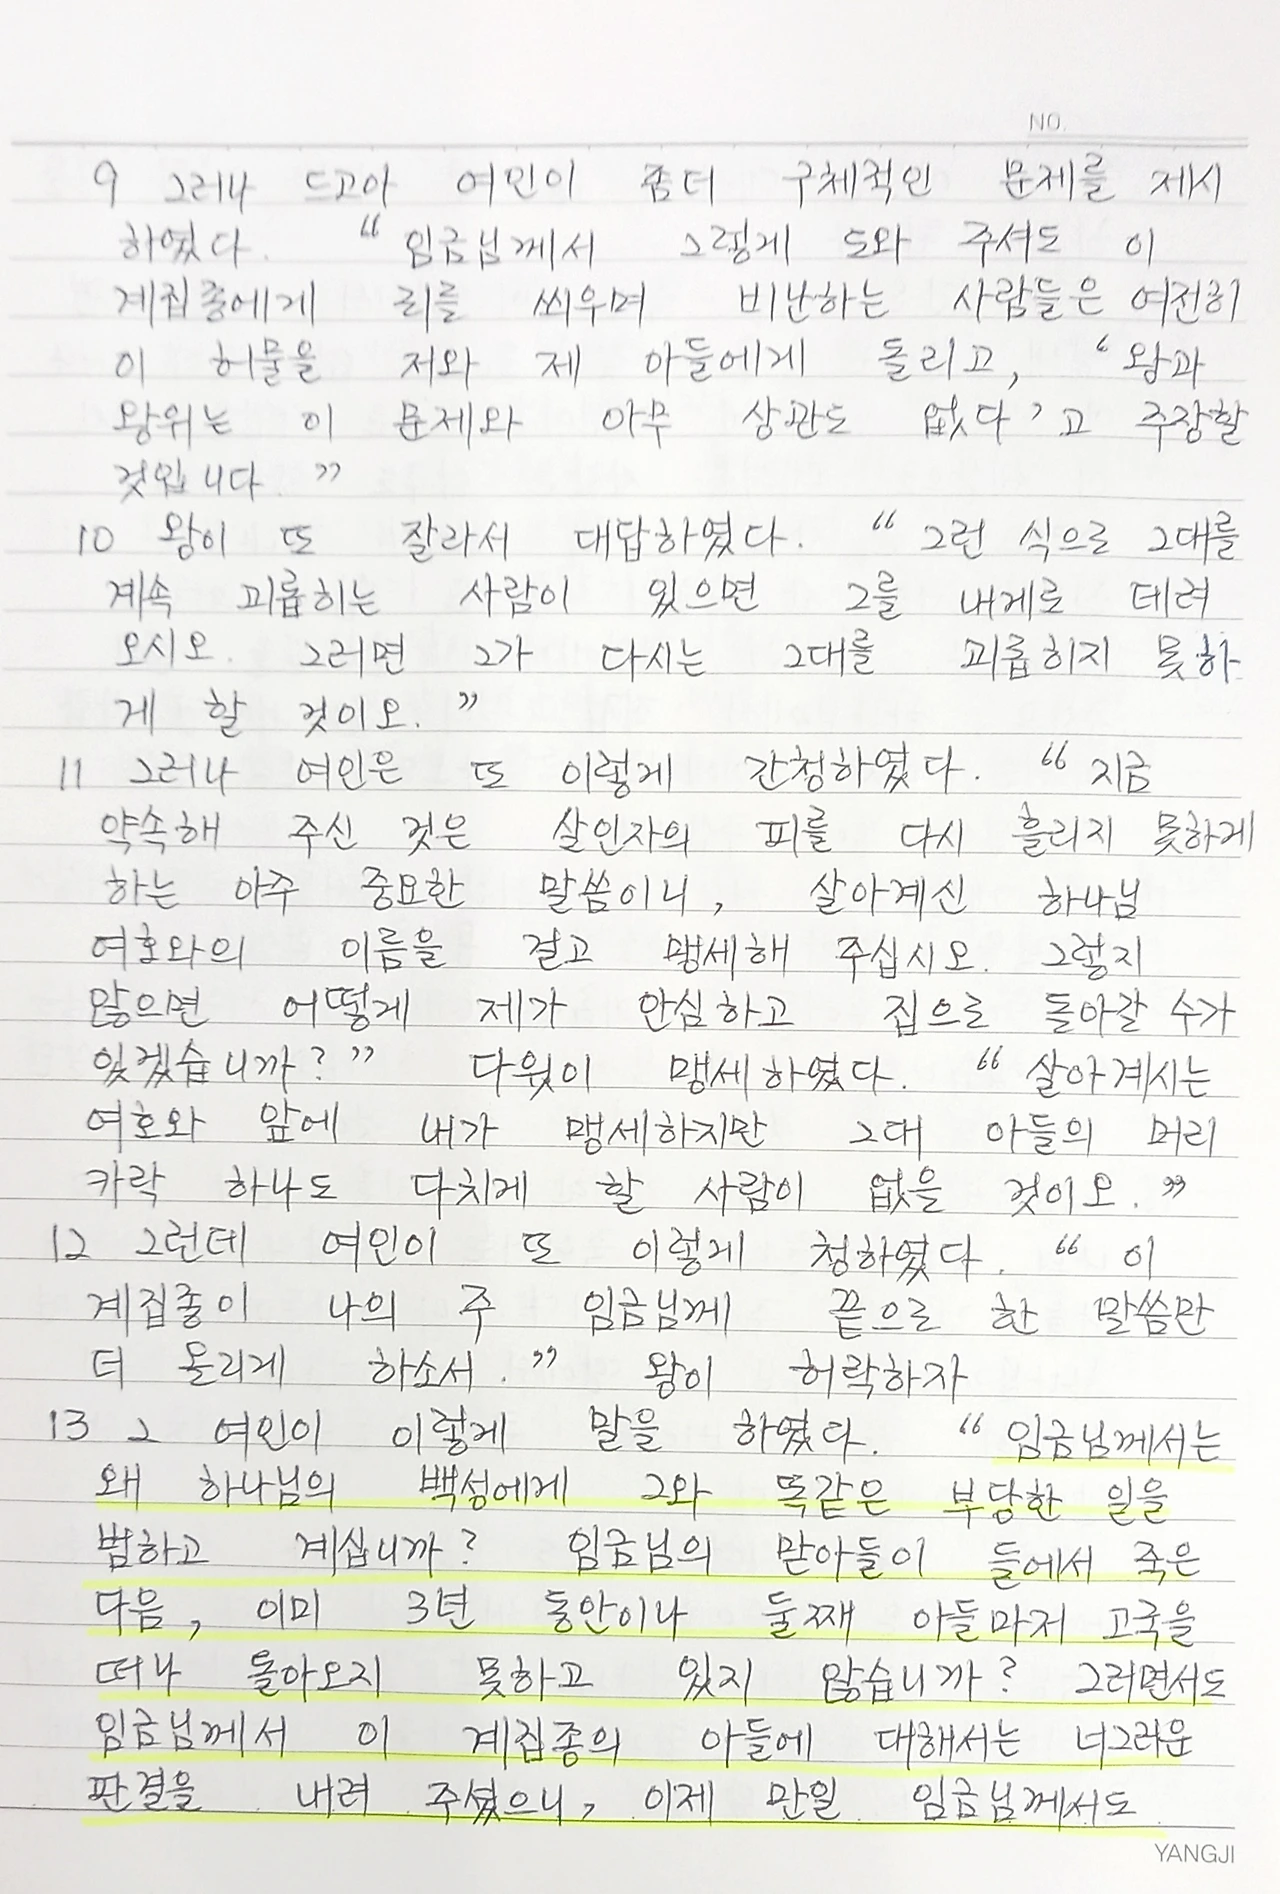 NO.
9 그러나 드고아 여인이 좀더 구체적인 문제를 제시
하였다. “임금님께서 그렇게 도와 주셔도 이
계집종에게 죄를 씌우며 비난하는 사람들은 여전히
이 허물을 저와 제 아들에게 돌리고, ‘왕과
왕위는 이 문제와 아무 상관도 없다’고 주장할
것입니다.”
10 왕이 또 잘라서 대답하였다. “그런 식으로 그대를
계속 괴롭히는 사람이 있으면 그를 내게로 데려
오시오. 그러면 그가 다시는 그대를 괴롭히지 못하
게 할 것이오.”
11 그러나 여인은 또 이렇게 간청하였다. “지금
약속해 주신 것은 살인자의 피를 다시 흘리지 못하게
하는 아주 중요한 말씀이니, 살아계신 하나님
여호와의 이름을 걸고 맹세해 주십시오. 그렇지
않으면 어떻게 제가 안심하고 집으로 돌아갈 수가
있겠습니까?” 다윗이 맹세하였다. “살아계시는
여호와 앞에 내가 맹세하지만 그대 아들의 머리
카락 하나도 다치게 할 사람이 없을 것이오.”
12 그런데 여인이 또 이렇게 청하였다. “이
계집종이 나의 주 임금님께 끝으로 한 말씀만
더 올리게 하소서.” 왕이 허락하자
13 그 여인이 이렇게 말을 하였다. “임금님께서는
왜 하나님의 백성에게 그와 똑같은 부당한 일을
범하고 계십니까? 임금님의 맏아들이 들에서 죽은
다음, 이미 3년 동안이나 둘째 아들마저 고국을
떠나 돌아오지 못하고 있지 않습니까? 그러면서도
임금님께서 이 계집종의 아들에 대해서는 너그러운
판결을 내려 주셨으니, 이제 만일 임금님께서도
YANGJI